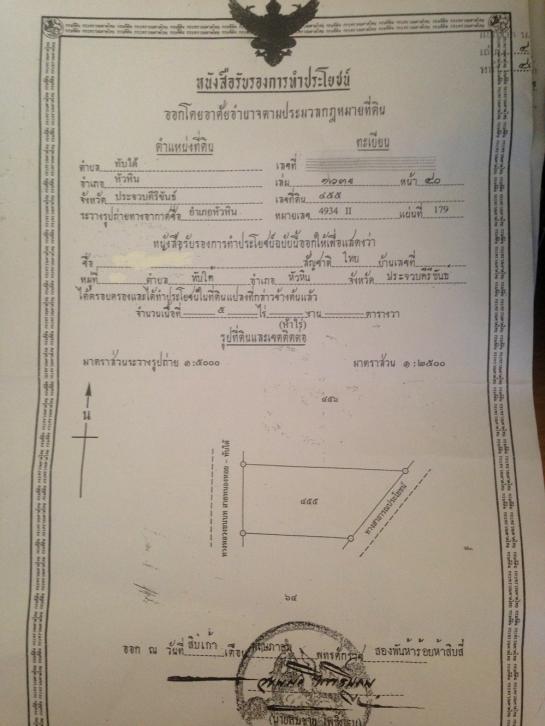 หนังสือรับรองการทำประโยชน์
ออกโดยอาศัยอำนาจตามประมวลกฎหมายที่ดิน
ตำแหน่งที่ดิน
ทะเบียน
ตำบล ทับใต้ เลขที่
อำเภอ หัวหิน เล่ม หน้า ๕๐
จังหวัด ประจวบคีรีขันธ์ เลขที่ดิน ๔๕๕
ระวางรูปถ่ายทางอากาศชื่อ อำเภอหัวหิน หมายเลข 4934 II แผ่นที่ 179
หนังสือรับรองการทำประโยชน์ฉบับนี้ออกให้เพื่อแสดงว่า
ชื่อ สัญชาติ ไทย บ้านเลขที่
หมู่ที่ ตำบล ทับใต้ อำเภอ หัวหิน จังหวัด ประจวบคีรีขันธ์
ได้ครอบครองและได้ทำประโยชน์ในที่ดินแปลงที่กล่าวข้างต้นแล้ว
จำนวนเนื้อที่ ๕ ไร่ งาน ตารางวา
(ห้าไร่)
รูปที่ดินและเขตติดต่อ
มาตราส่วนระวางรูปถ่าย ๑:๕๐๐๐ มาตราส่วน ๑:๒๕๐๐
น
๔๕๖
ทางหลวงชนบท สายหนองหอย - ทับใต้
๔๕๕
ทางสาธารณประโยชน์
๖๔
ออก ณ วันที่ สิบเก้า เดือน พฤษภาคม พุทธศักราช สองพันห้าร้อยห้าสิบสี่